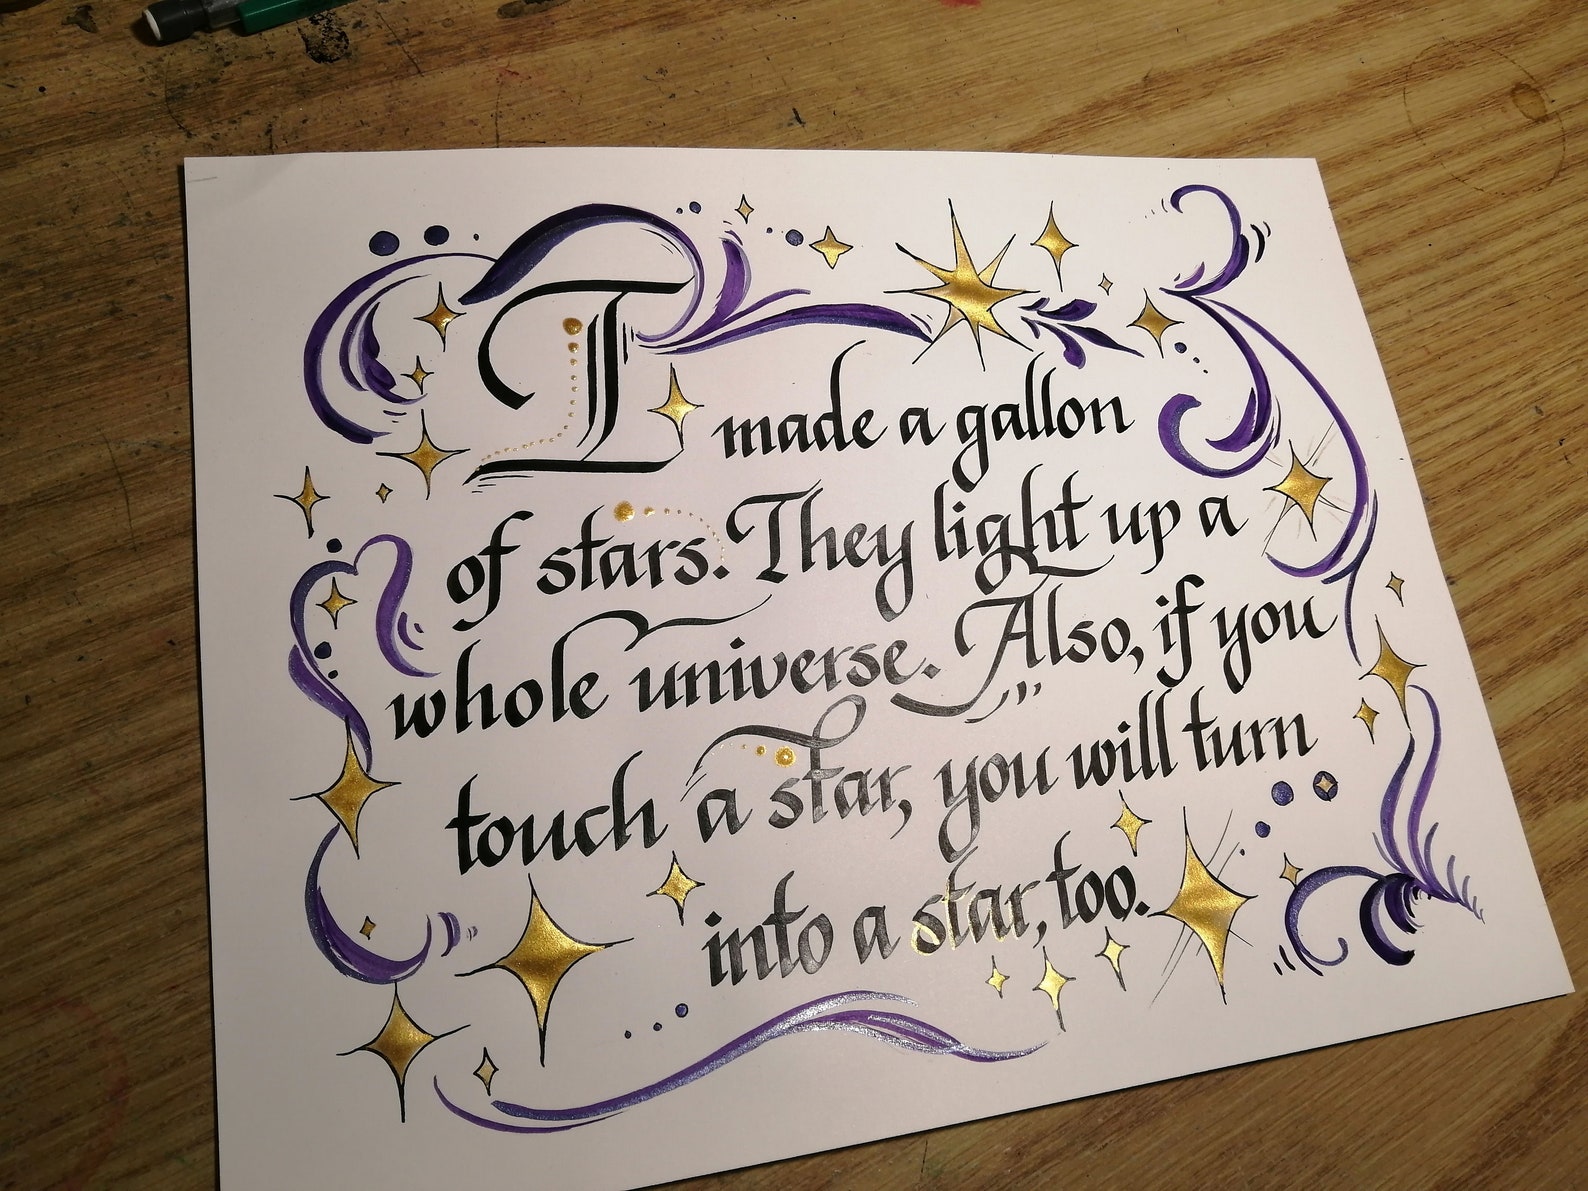 I made a gallon
of stars. They light up a
whole universe. Also, if you
touch a star, you will turn
into a star, too.